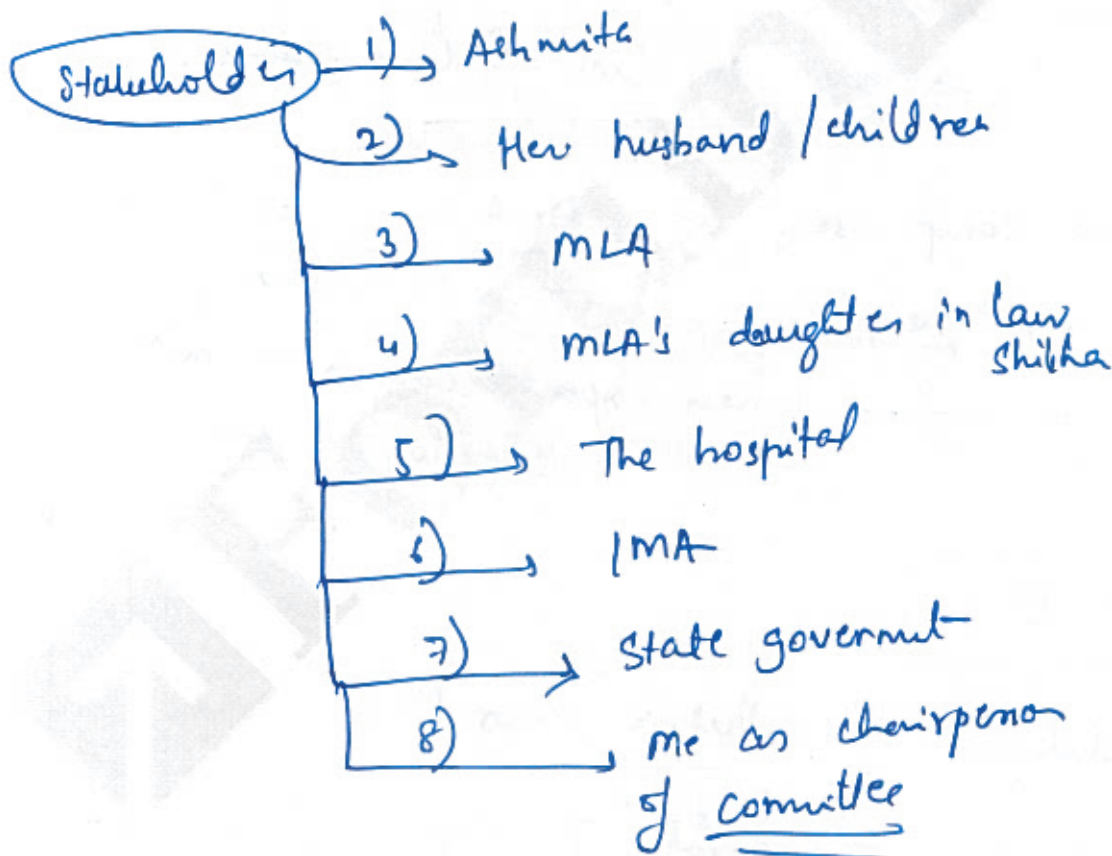 Stakeholders
1) Ashmita
2) Her husband / children
3) MLA
4) MLA's daughter in law
Shikha
5) The hospital
6) IMA
7) State governmt
8) me as chairperson
of committee